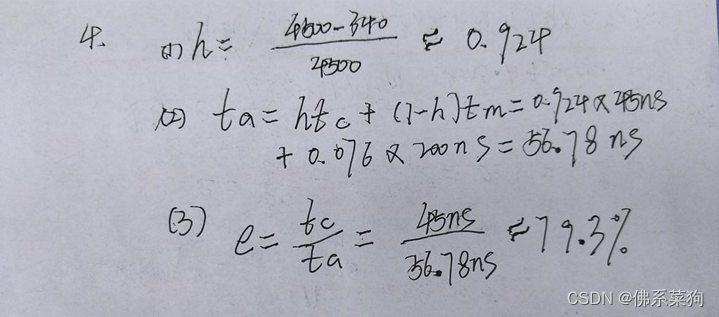 4. (1) h = (4500-340)/4500 ≈ 0.924
(2) ta = htc + (1-h)tm = 0.924×45ns
+ 0.076×200ns = 56.78 ns
(3) e = tc/ta = 45ns/56.78ns ≈ 79.3%
CSDN @佛系菜狗